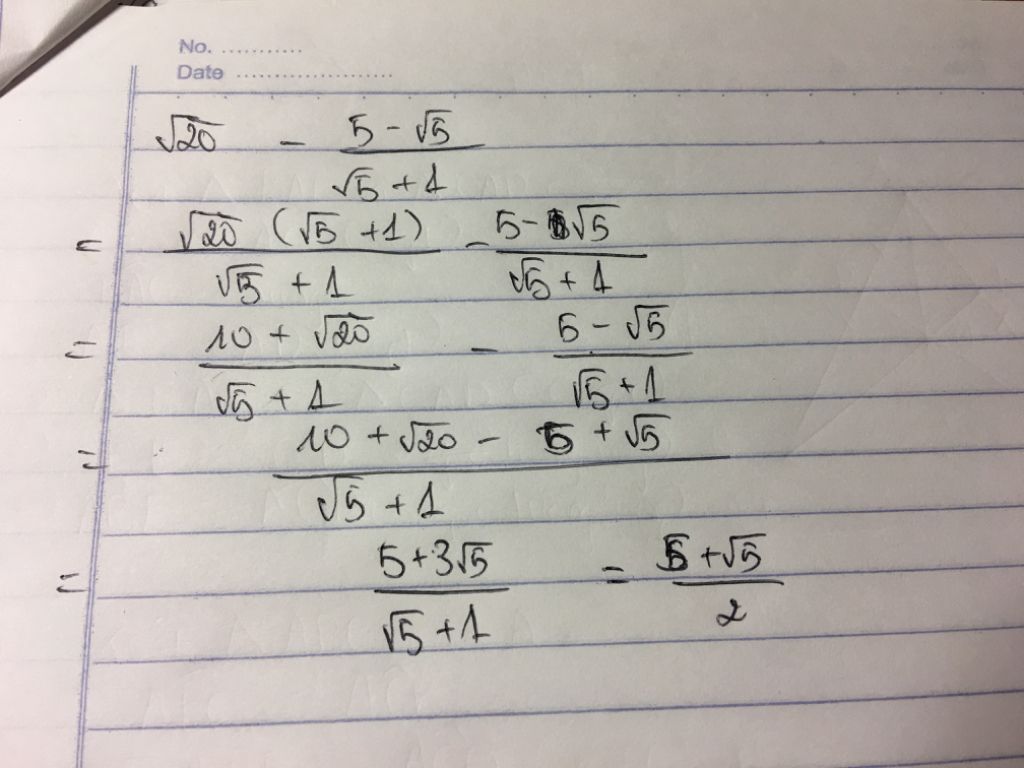 No. ...........
Date ....................
√20 - (5 - √5)/(√5 + 1)
= (√20 (√5 + 1))/(√5 + 1) - (5 - √5)/(√5 + 1)
= (10 + √20)/(√5 + 1) - (5 - √5)/(√5 + 1)
= (10 + √20 - 5 + √5)/(√5 + 1)
= (5 + 3√5)/(√5 + 1) = (5 + √5)/2